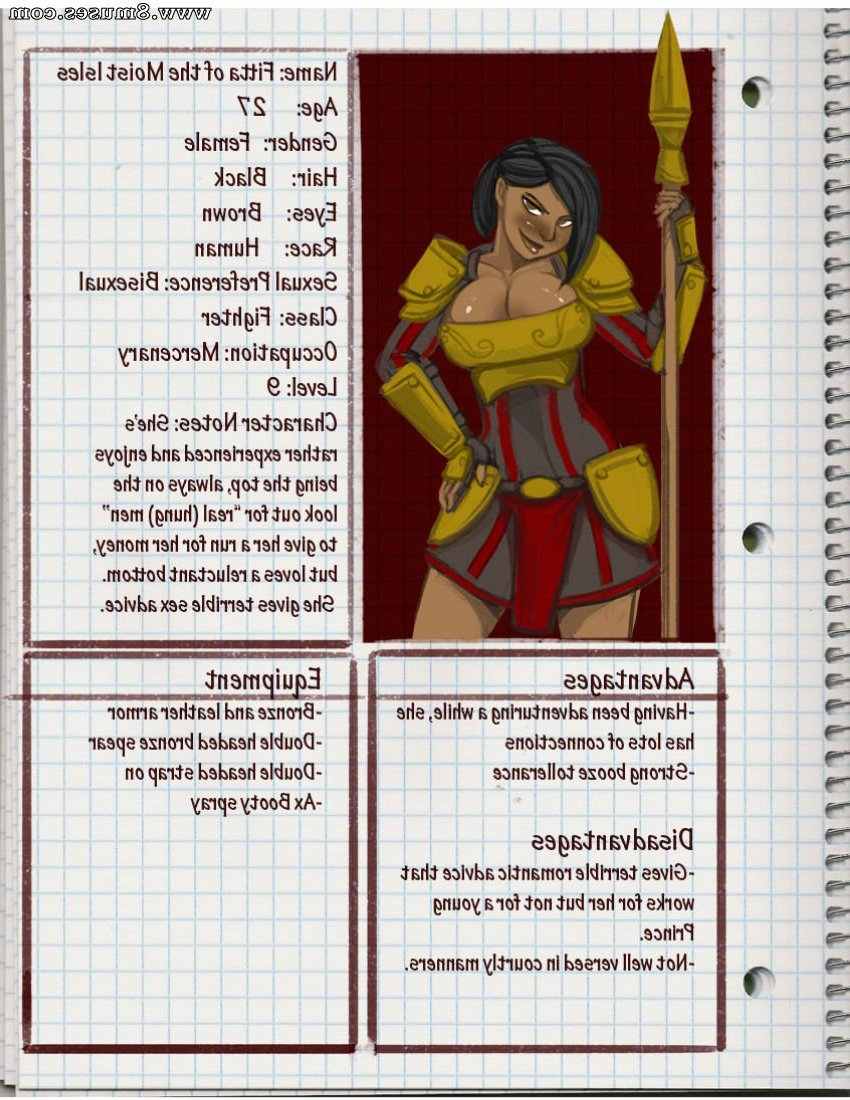 www.8muses.com
Name: Fitta of the Moist Isles
Age: 27
Gender: Female
Hair: Black
Eyes: Brown
Race: Human
Sexual Preference: Bisexual
Class: Fighter
Occupation: Mercenary
Level: 9
Character Notes: She's
rather experienced and enjoys
being the top, always on the
look out for "real (hung) men"
to give her a run for her money,
but loves a reluctant bottom.
She gives terrible sex advice.
Advantages
-Having been adventuring a while, she
has lots of connections
-Strong booze tollerance
Disadvantages
-Gives terrible romantic advice that
works for her but not for a young
Prince.
-Not well versed in courtly manners.
Equipment
-Bronze and leather armor
-Double headed bronze spear
-Double headed strap on
-Ax Booty spray